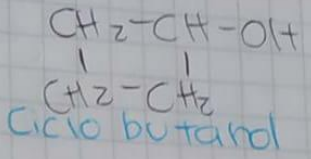 CH2-CH-OH
| |
CH2-CH2
Ciclo butanol